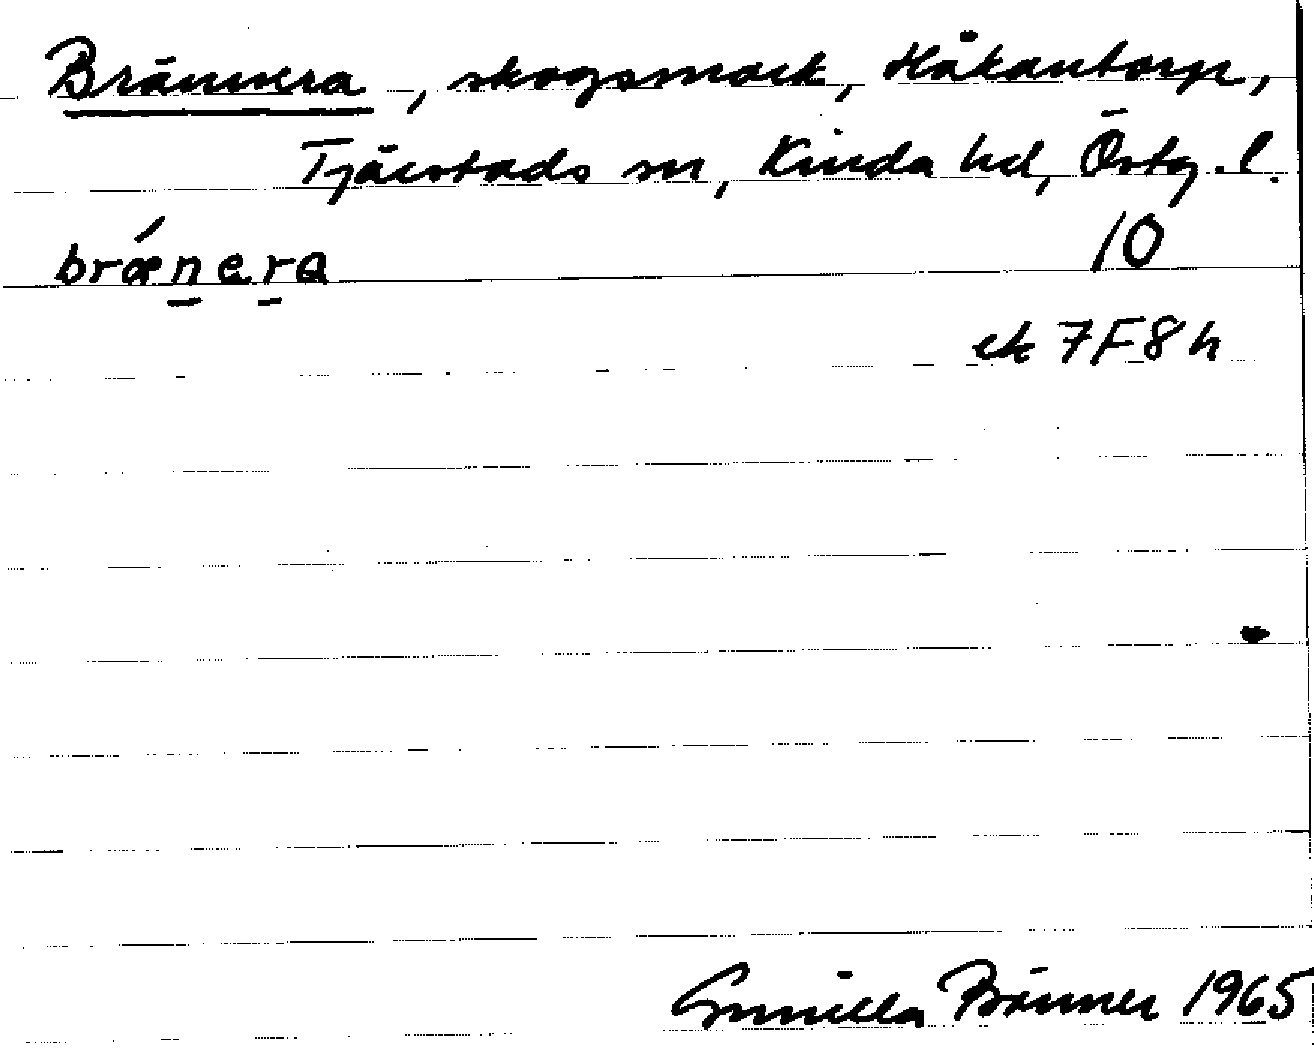 Brännera, skogsmark, Håkantorp,
Tjärstads sn, Kinda hd, Östg. l.
brǽnera 10
ek 7F8h
Gunilla Bränner 1965